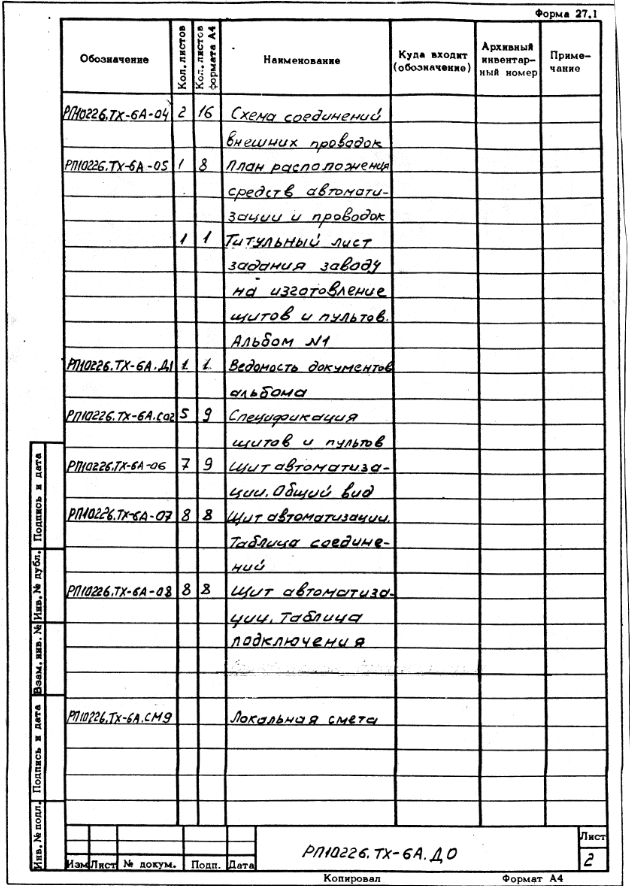 Форма 27.1
Обозначение
Кол. листов
Кол. листов формата А4
Наименование
Куда входит (обозначение)
Архивный инвентарный номер
Примечание
РП10226.ТХ-6А-04 2 16 Схема соединений
внешних проводок
РП10226.ТХ-6А-05 1 8 План расположения
средств автомати-
зации и проводок
1 1 Титульный лист
задания заводу
на изготовление
щитов и пультов.
Альбом №1
РП10226.ТХ-6А.Д1 1 1 Ведомость документов
альбома
РП10226.ТХ-6А.СО2 5 9 Спецификация
щитов и пультов
РП10226.ТХ-6А-06 7 9 Щит автоматиза-
ции. Общий вид
РП10226.ТХ-6А-07 8 8 Щит автоматизации.
Таблица соедине-
ний
РП10226.ТХ-6А-08 8 8 Щит автоматиза-
ции. Таблица
подключения
РП10226.ТХ-6А.СМ9 Локальная смета
Инв. № подл.
Подпись и дата
Взам. инв. №
Инв. № дубл.
Подпись и дата
РП10226.ТХ-6А.ДО
Лист
2
Изм Лист № докум. Подп. Дата
Копировал Формат А4